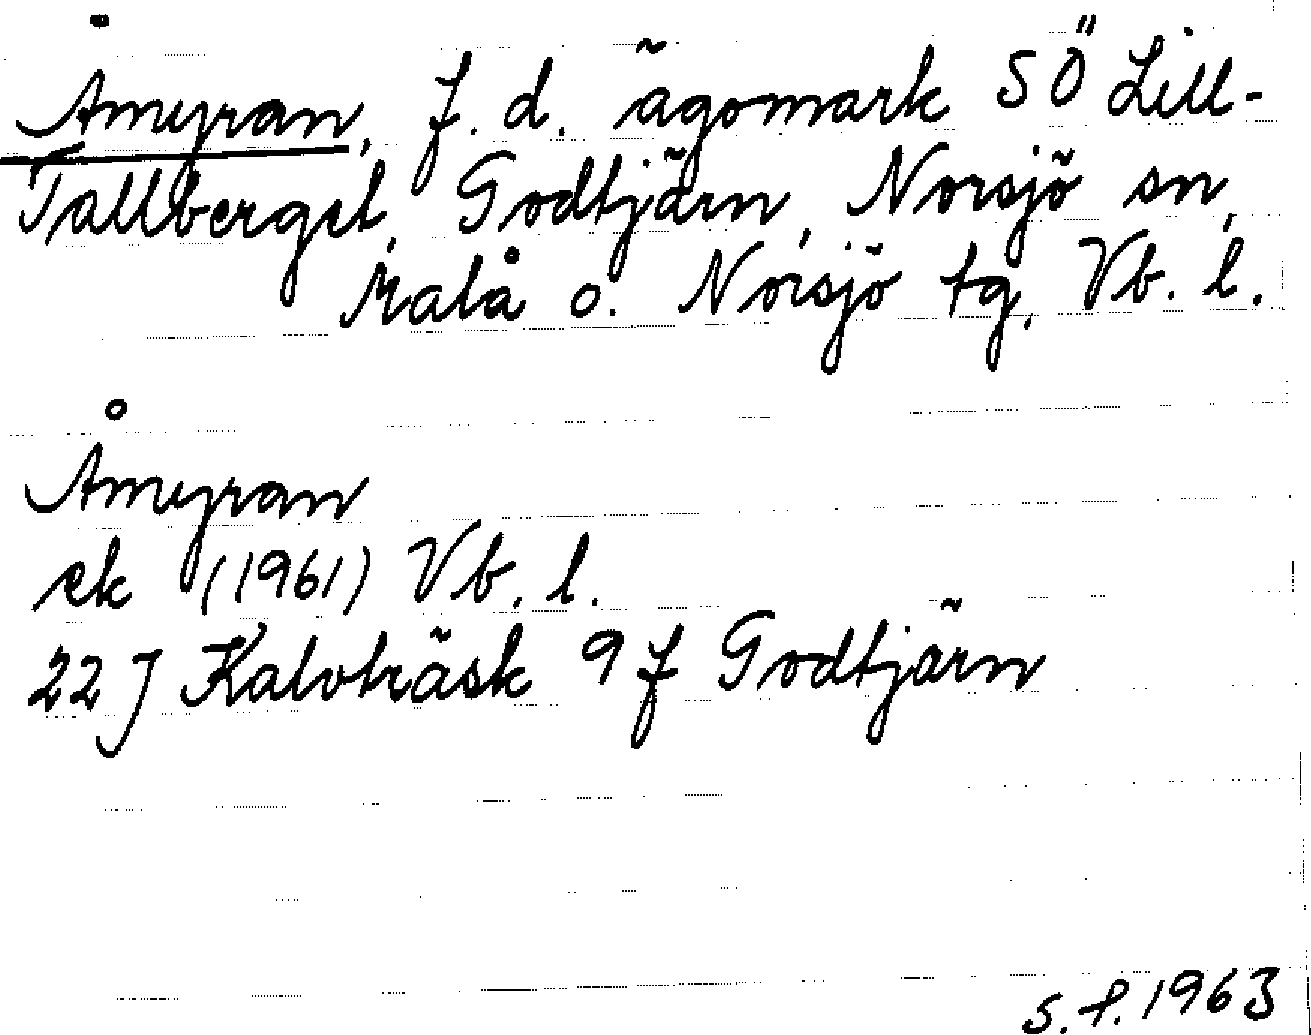 Åmyran, f.d. ägomark SÖ Lill-
Tallberget, Godtjärn, Norsjö sn,
Malå o. Norsjö tg, Vb. l.
Åmyran
ek (1961) Vb. l.
22 J Kalvträsk 9 f Godtjärn
s. f. 1963